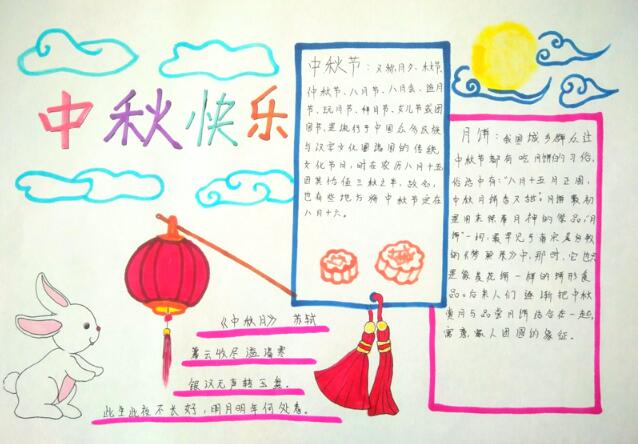 中秋快乐
中秋节：又称月夕、秋节、
仲秋节、八月节、八月会、追月
节、玩月节、拜月节、女儿节或团
圆节，是流行于中国众多民族
与汉字文化圈诸国的传统
文化节日，时在农历八月十五；
因其恰值三秋之半，故名，
也有些地方将中秋节定在
八月十六。
月饼：我国城乡群众过
中秋节都有吃月饼的习俗，
俗话中有：“八月十五月正圆，
中秋月饼香又甜”。月饼最初
是用来祭奉月神的祭品，“月
饼”一词，最早见于南宋吴自牧
的《梦粱录》中，那时，它也只
是像菱花饼一样的饼形食
品。后来人们逐渐把中秋
赏月与品尝月饼结合在一起，
寓意家人团圆的象征。
《中秋月》 苏轼
暮云收尽溢清寒
银汉无声转玉盘。
此生此夜不长好，明月明年何处看。